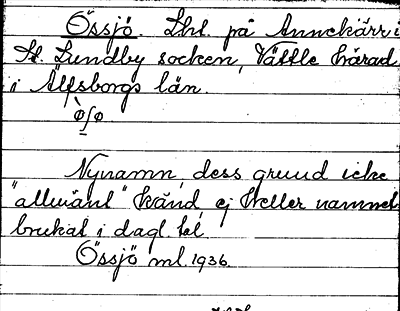 Össjö. Lht. på Annekärr i
St. Lundby socken, Vättle härad
i Älfsborgs län.
Nynamn, dess grund icke
"allmänt" känd, ej heller namnet
brukat i dagl. tal.
Össjö ml. 1936.